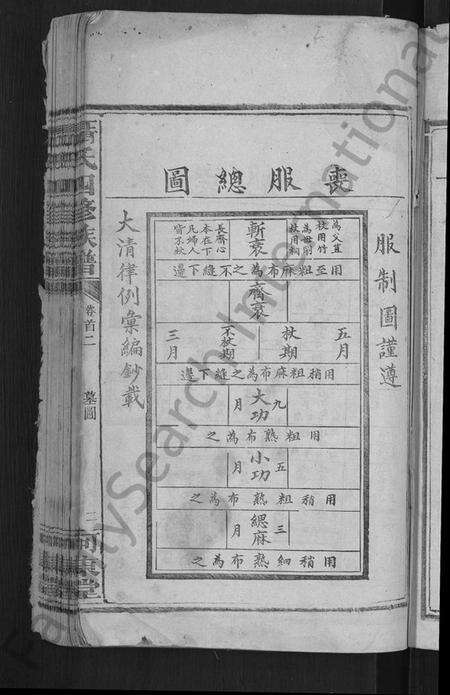 喪服總圖
服制圖謹遵
為父直杖用竹
為母削杖用桐
斬衰
長齊心
本在下
凡婦人
皆不杖
用至粗麻布為之不縫下邊
齊衰
五月
杖期
不杖期
三月
用稍粗麻布為之縫下邊
大功
九月
用粗熟布為之
小功
五月
用稍粗熟布為之
緦麻
三月
用稍細熟布為之
大清律例彙編鈔載
氏四修族譜
卷首二
墓圖
河東堂
FamilySearch International